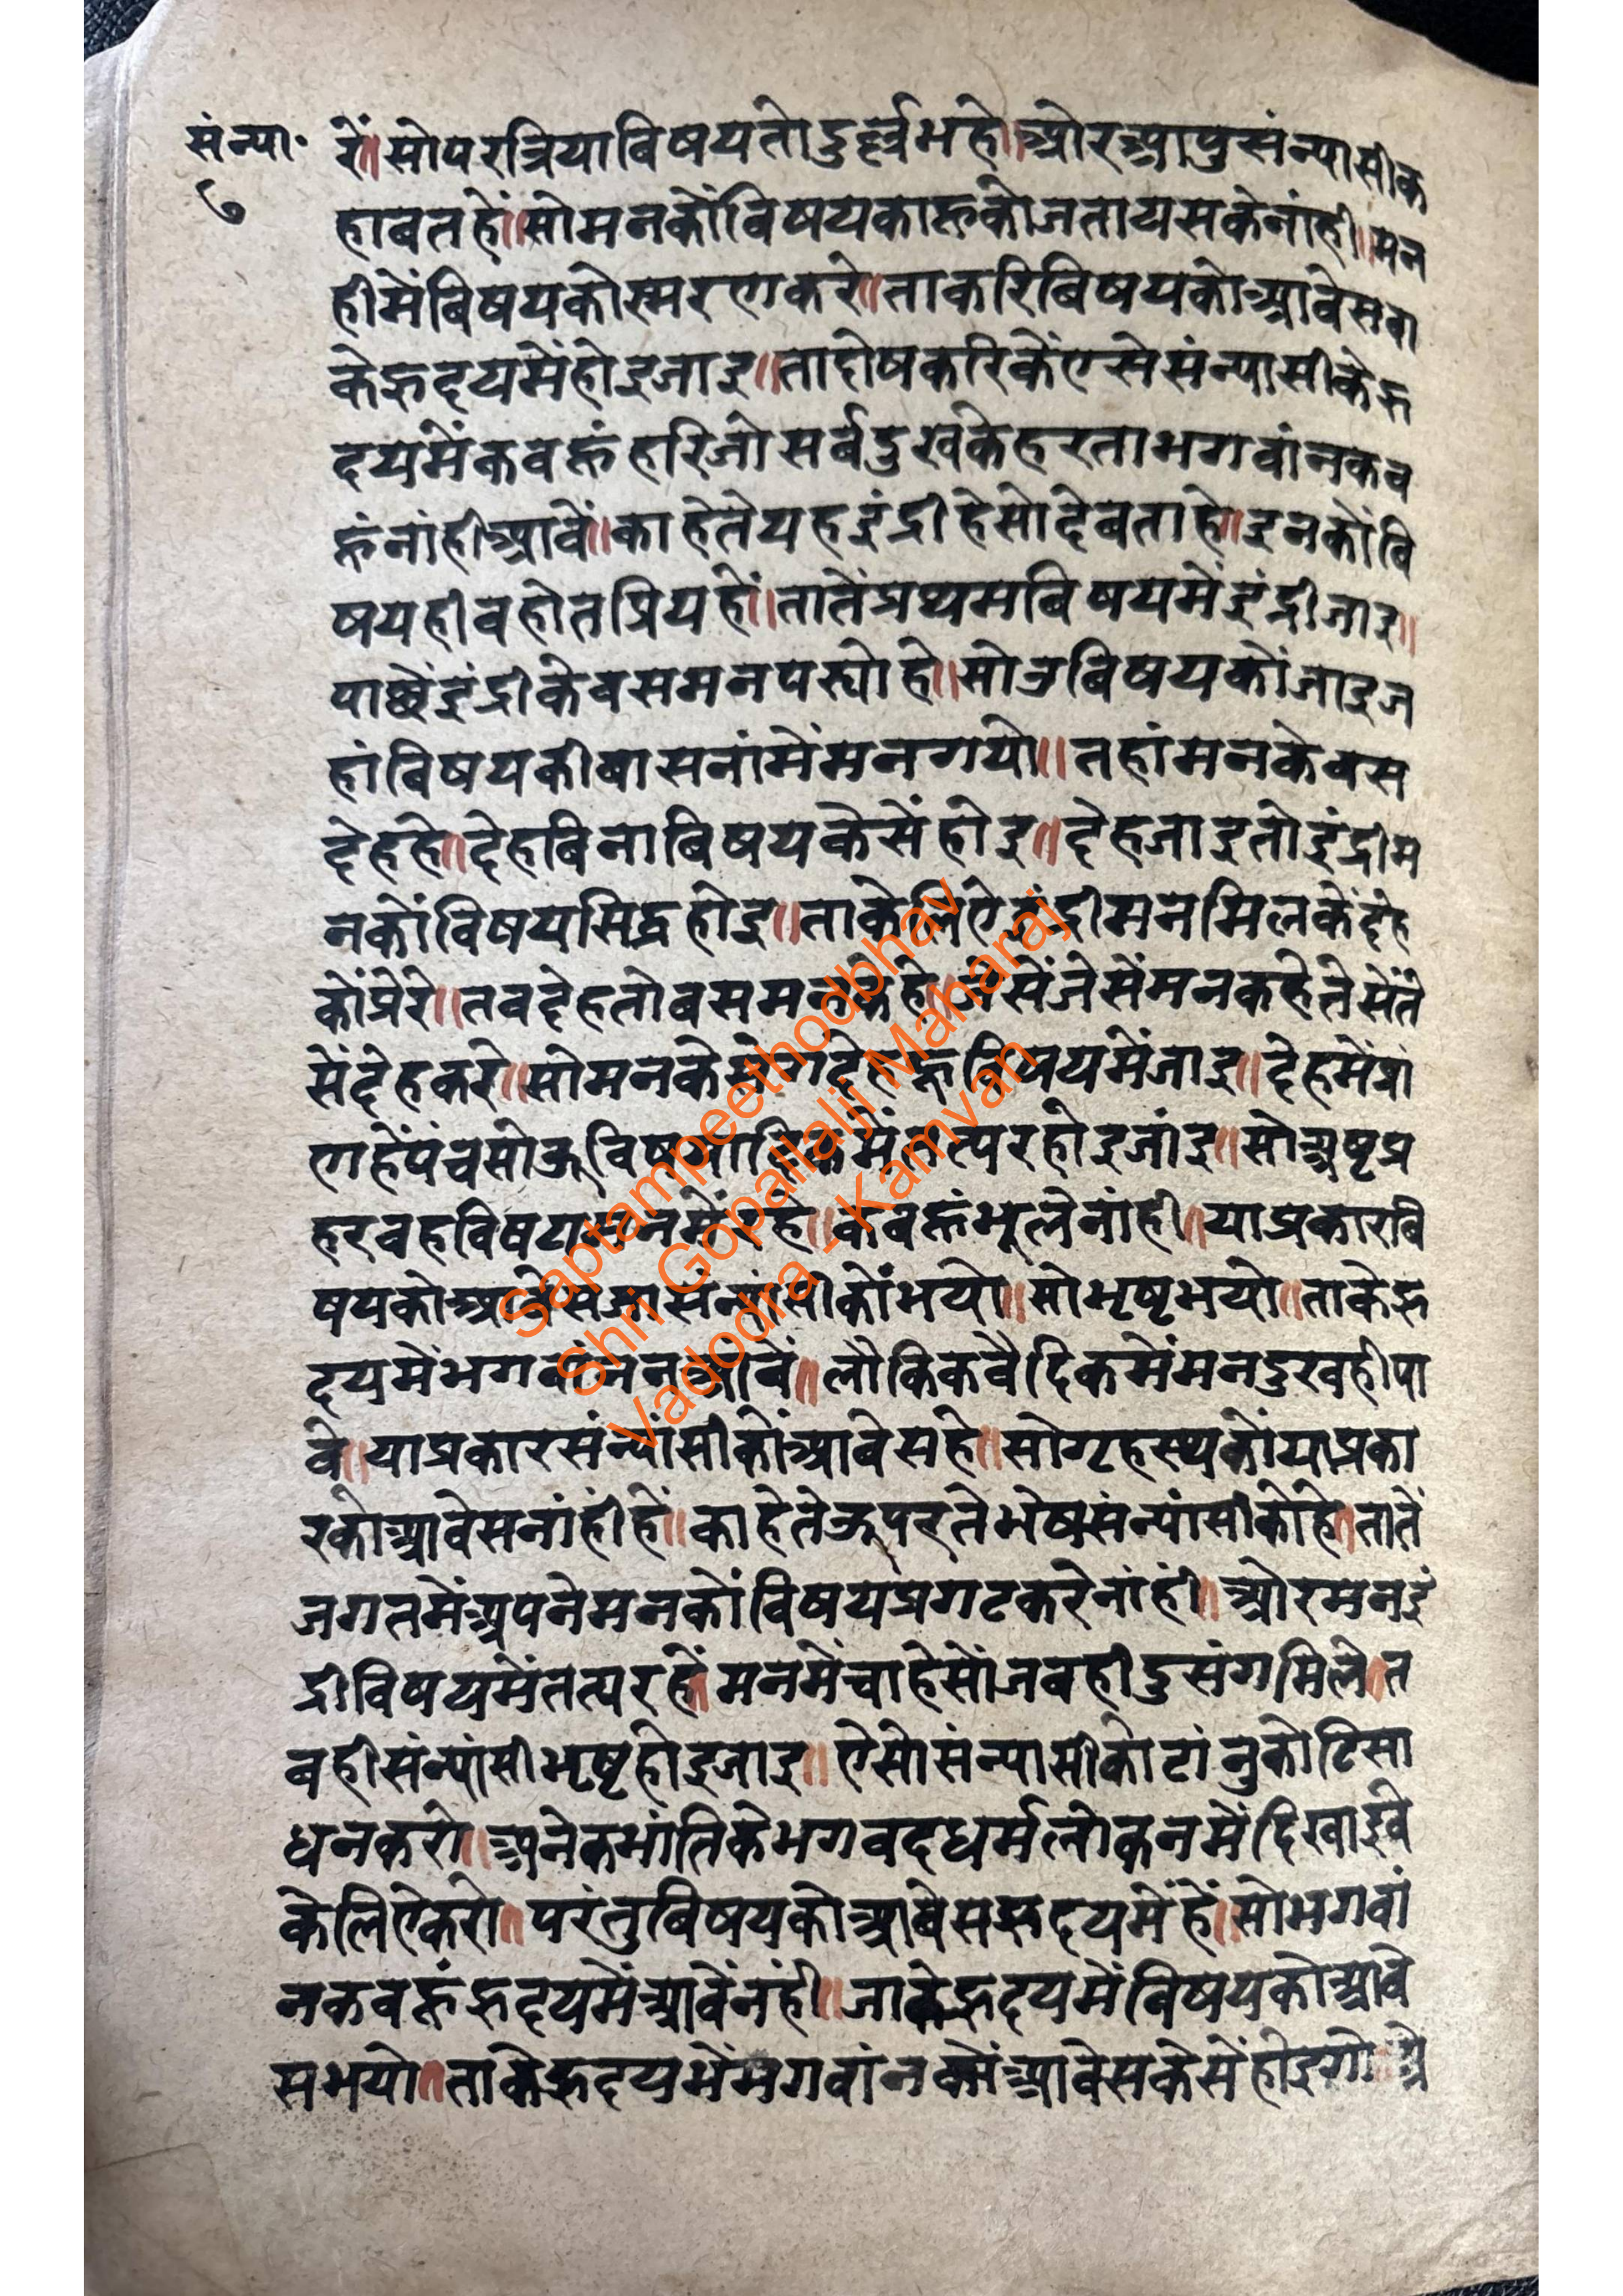 संन्या॰
७
रें॥सोपरत्रियाविषयतोदुर्ल्लभहे॥ओरआपुसंन्यासीक
हावतहें॥सोमनकोंविषयकाहूकोजतायसकेनांही॥मन
हीमेंविषयकोस्मरणकरे॥ताकरिविषयकोआवेसवा
केहृदयमेंहोइजाइ॥तादोषकरिकेंएसेसंन्यासीकेहृ
दयमेंकवहूंहरिजोसर्वदुखकेहरताभगवांनकव
हूंनांहीआवें॥काहेतेयहइंद्रीहेसोदेवताहे॥इनकोंवि
षयहीवहोतप्रियहें॥तातेंप्रथमविषयमेंइंद्रीजाइ॥
पाछेंइंद्रीकेवसमनपर्योहे॥सोउविषयकोंजाइज
हांविषयकीवासनांमेंमनगयो॥तहांमनकेवस
देहहे॥देहविनाविषयकेसेंहोइ॥देहजाइतोइंद्रीम
नकोंविषयसिद्धहोइ॥ताकेलिऐइंद्रीमनमिलकेंदेह
कोंप्रेरे॥तवदेहतोवसमनकेहे॥जेसेंजेसेंमनकहेतेसेंते
सेंदेहकरे॥सोमनकेसंगदेहहूविषयमेंजाइ॥देहमेंप्रां
णहेंपंचसोऊविषयादिकमेंतत्परहोइजांइ॥सोअष्टप्र
हरवहविषयमनमेंरहे॥कवहूंभूलेनांही॥याप्रकारवि
षयकोआवेसजासंन्यासीकोंभयो॥सोभृष्टभयो॥ताकेहृ
दयमेंभगवांननआवें॥लौकिकवैदिकमेंमनदुखहीपा
वे॥याप्रकारसंन्यांसीकोंआवेसहे॥सोगृहस्थकोंयाप्रका
रकोआवेसनांहींहें॥काहेतेऊपरतेभेषसंन्यांसीकोहे॥तातें
जगतमेंअपनेमनकोंविषयप्रगटकरेनांहीं॥ओरमनइं
द्रीविषयमेंतत्परहें॥मनमेंचाहेसोंजवहीदुसंगमिले॥त
वहीसंन्यांसीभृष्टहोइजाइ॥ऐसोसंन्यासीकोटांनुकोटिसा
धनकरो॥अनेकभांतिकेभगवदधर्मलोकनमेंदिखाईवे
केलिऐकरो॥परंतुविषयकोआवेसहृदयमेंहें॥सोभगवां
नकवहूंहृदयमेंआवेंनंही॥जाकेहृदयमेंविषयकोआवे
सभयो॥ताकेहृदयमेंभगवांनकोंआवेसकेसेंहोइगो॥प्रे
Saptampeethodbhav
Shri Gopallalji Maharaj
Vadodra - Kamvan